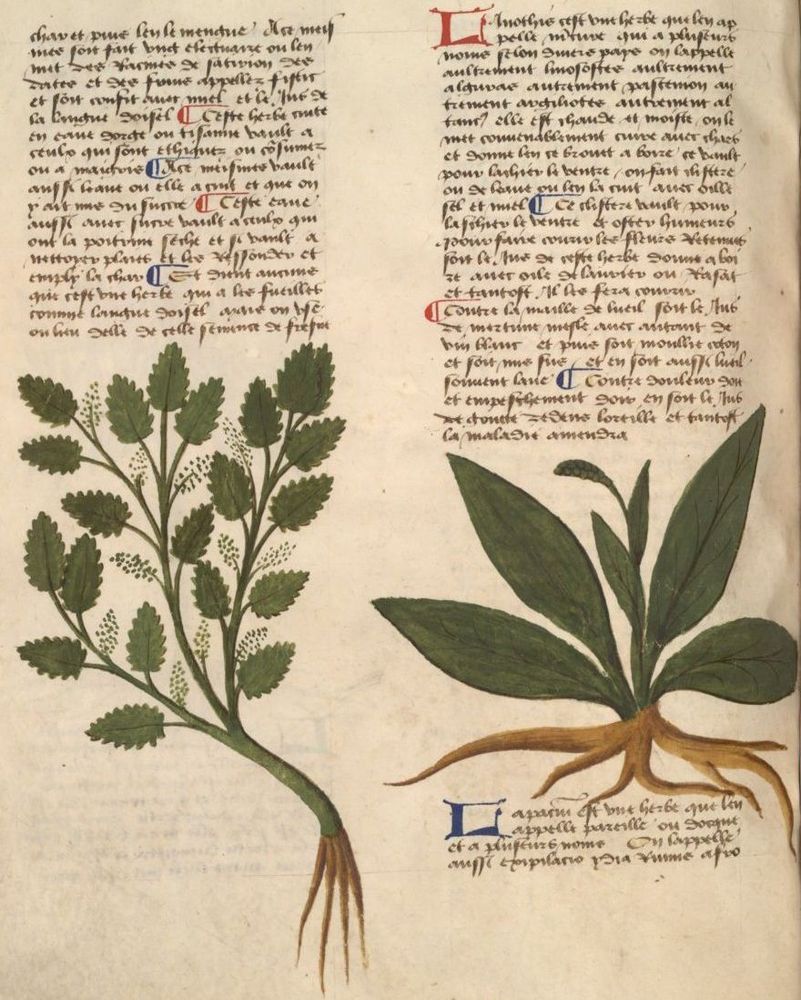 char et puis len le mengue Ace meis
mes soit fait ung electuaire ou len
met des Racines de satirion des
dates et des fruis appellez fistic
et soit confit avec miel et le Jus de
la langue doisel ¶ Ceste herbe cuite
en eaue dorge ou tisanne vault a
ceulx qui sont ethiques ou cōsumez
ou a maigris ¶ Ace meismes vault
aussi leaue ou elle a cuit et que on
y ait mis du succre ¶ Ceste eaue
aussi avec sucre vault a ceulx qui
ont la poitrine seche et si vault a
nettoyer plaies et les Ressonder et
emplir la char ¶ Et dient aucuns
que cest une herbe qui a les fueilles
comme langue doisel mais on use
ou lieu delle de celle semence de fresne
Linothis cest une herbe que len ap
pelle mature qui a pluseurs
noms selon divers pays on lappelle
aultrement linosostes aultrement
algutas autrement pastemon au
trement argiliotes autrement al
tanc elle est chaude et moiste on le
met convenablement cuire avec chars
et donne len ce brouet a boire ce vault
pour laschier le ventre on fait clistere
ou de leaue ou len la cuit avec oille
sel et miel ¶ Ce clistere vault pour
laschier le ventre et oster humeurs
pour faire courir les fleurs Retenues
soit le Jus de ceste herbe donne a boi
re avec oile de laurier ou Rasat
et tantost Il les fera courir
¶ Contre la maille de lueil soit le Jus
de mercure mesle avec autant de
vin blanc et puis soit moullie coton
et soit mis sus et en soit aussi lueil
souvent lave ¶ Contre douleur doir
et empeschement doir en soit le Jus
de goute dedens loreille et tantost
la maladie amendra
Lapaciū est une herbe que len
appelle pareille ou docque
et a pluseurs noms On lappelle
aussi